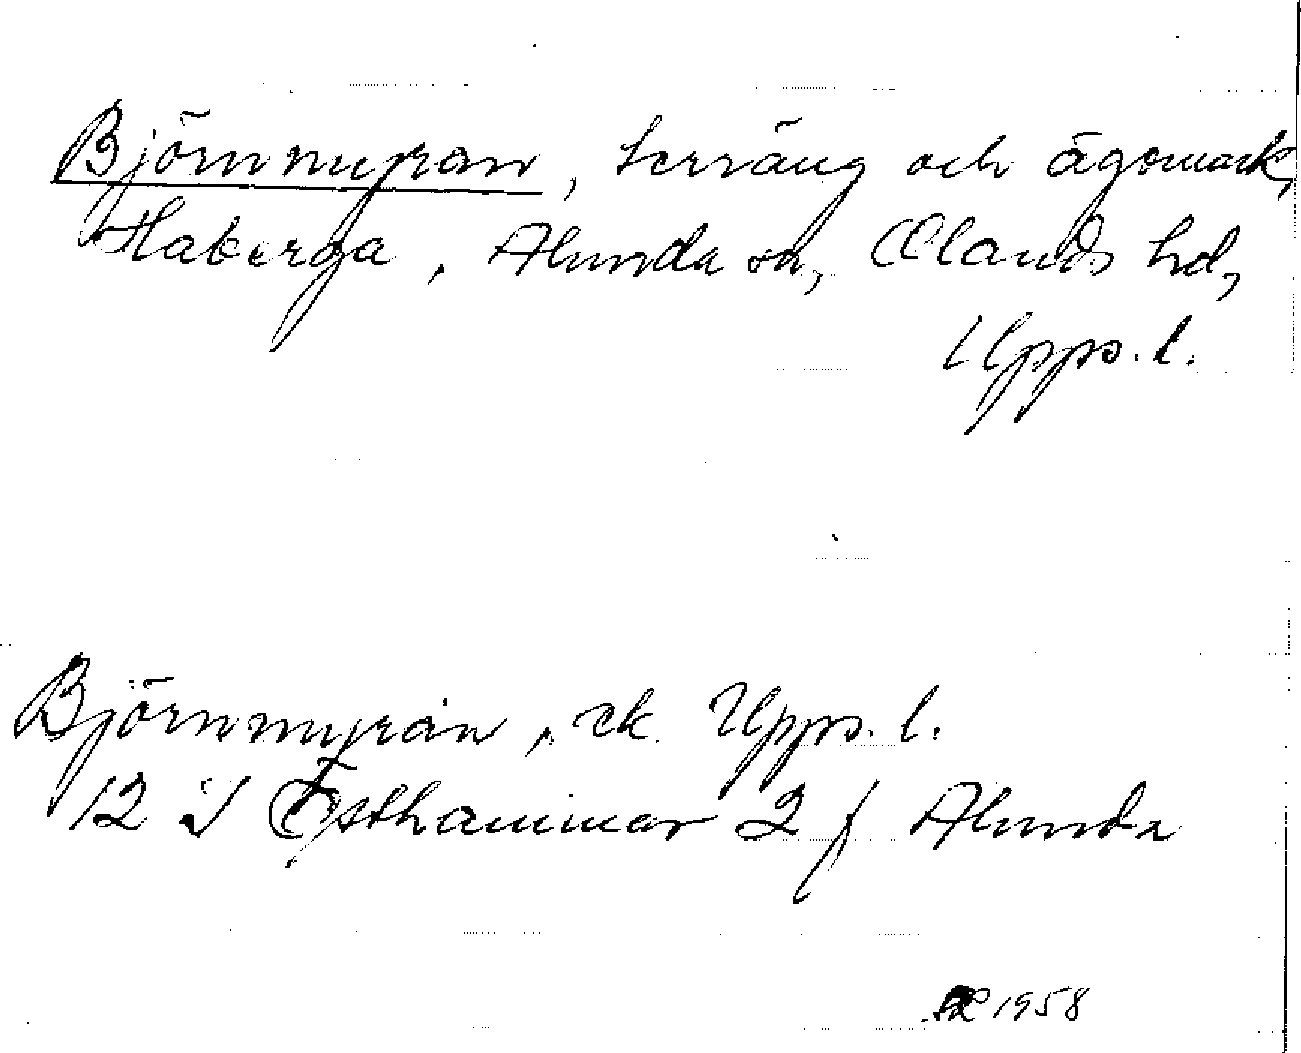 Björnmyran, terräng och ägomark,
Haberga, Alunda sn, Olands hd,
Upps. l.
Björnmyran, ek. Upps. l.
12 I Östhammar 2 f Alunda
1958